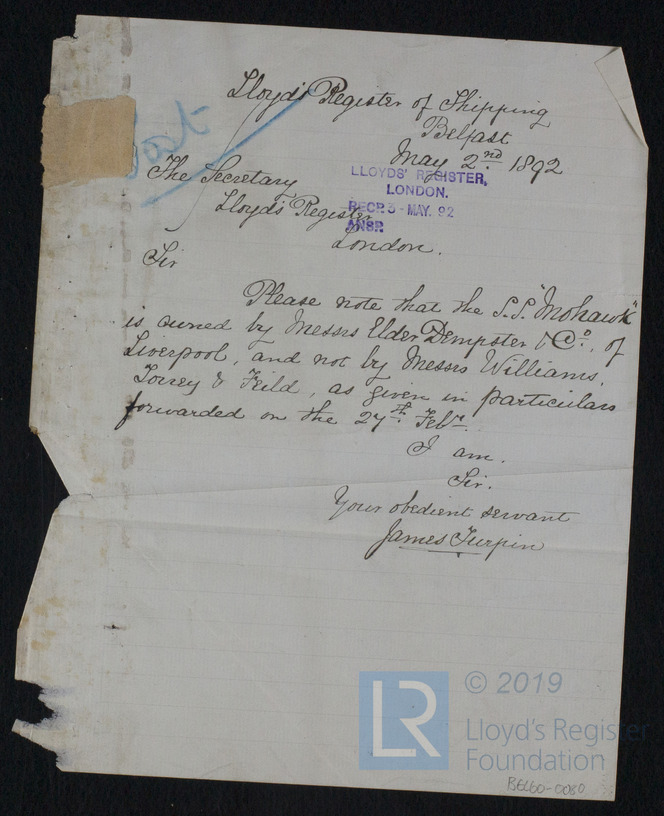 Lloyd's Register of Shipping
Belfast
May 2nd 1892
The Secretary
Lloyd's Register
London.
LLOYDS' REGISTER,
LONDON.
RECD. 3 - MAY. 92
ANSR
Sir
Please note that the S.S. "Mohawk"
is owned by Messrs Elder Dempster & Co., of
Liverpool, and not by Messrs Williams,
Torrey & Feild, as given in particulars
forwarded on the 27th Feby.
I am.
Sir.
Your obedient servant
James Turpin
LR
© 2019
Lloyd's Register
Foundation
BEL60-0080